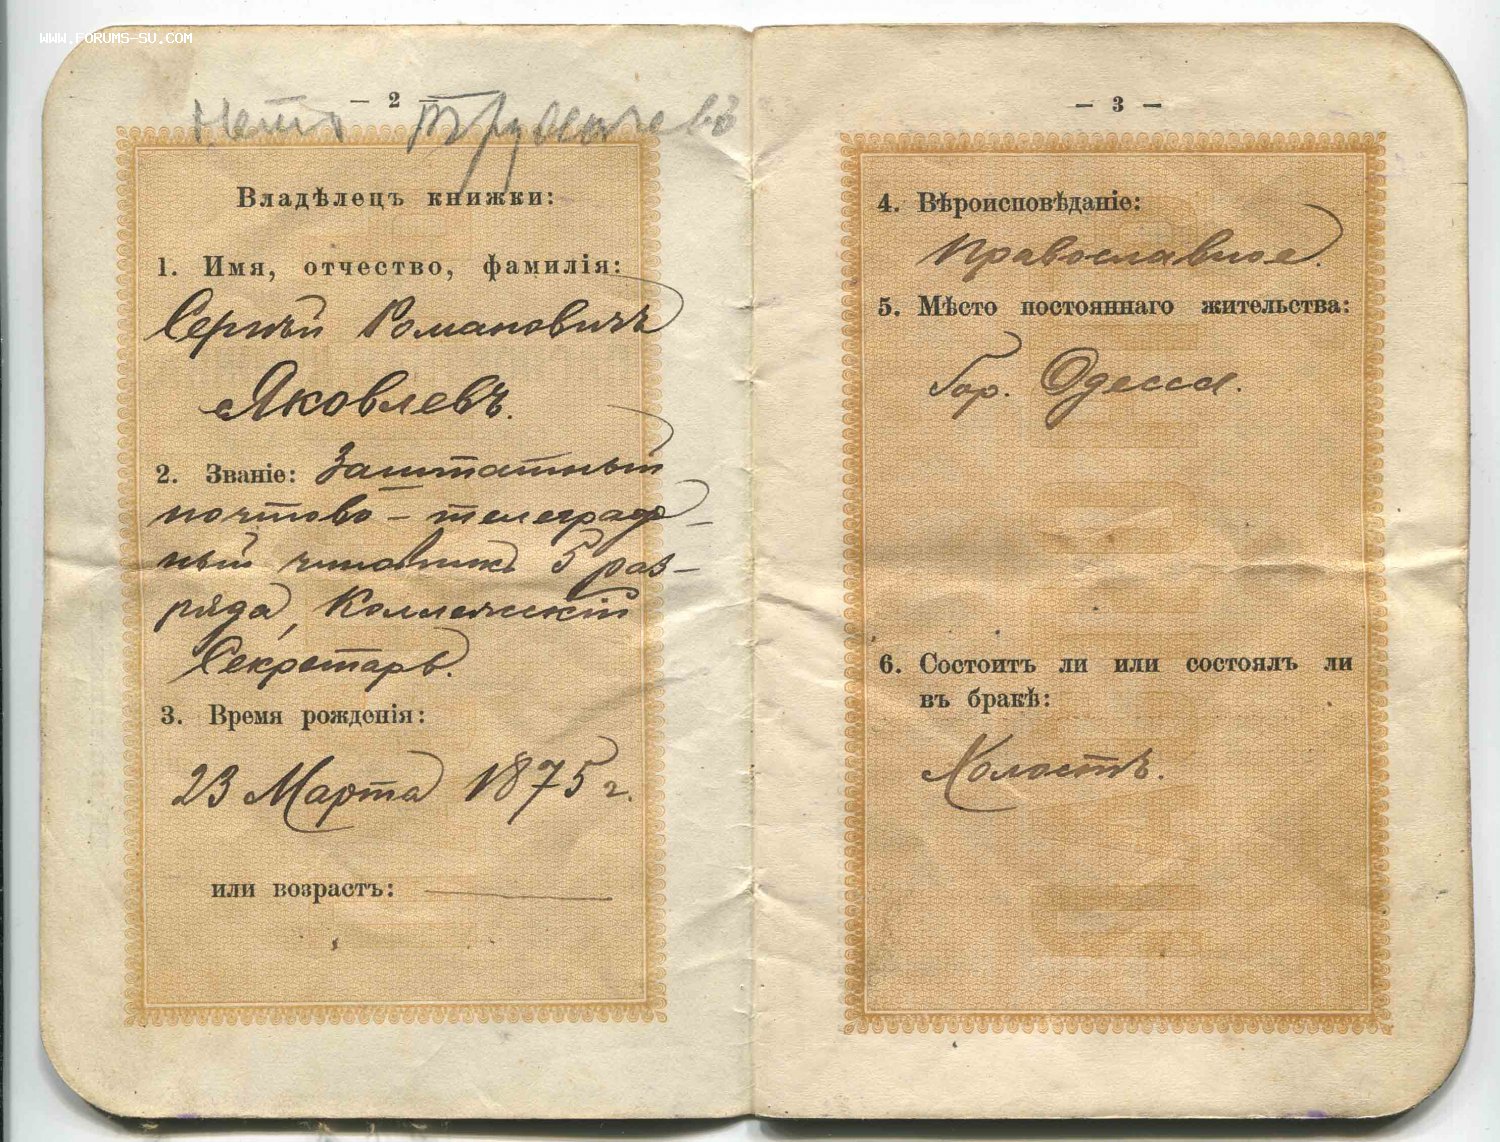 WWW.FORUMS-SU.COM
— 2 —
Владѣлецъ книжки:
1. Имя, отчество, фамилія:
Сергѣй Романовичъ
Яковлевъ.
2. Званіе: Заштатный
почтово-телеграф-
ный чиновникъ 5 раз-
ряда, Коллежскій
Секретарь.
3. Время рожденія:
23 Марта 1875 г.
или возрастъ:
— 3 —
4. Вѣроисповѣданіе:
Православное.
5. Мѣсто постояннаго жительства:
Гор. Одесса.
6. Состоитъ ли или состоялъ ли
въ бракѣ:
Холостъ.